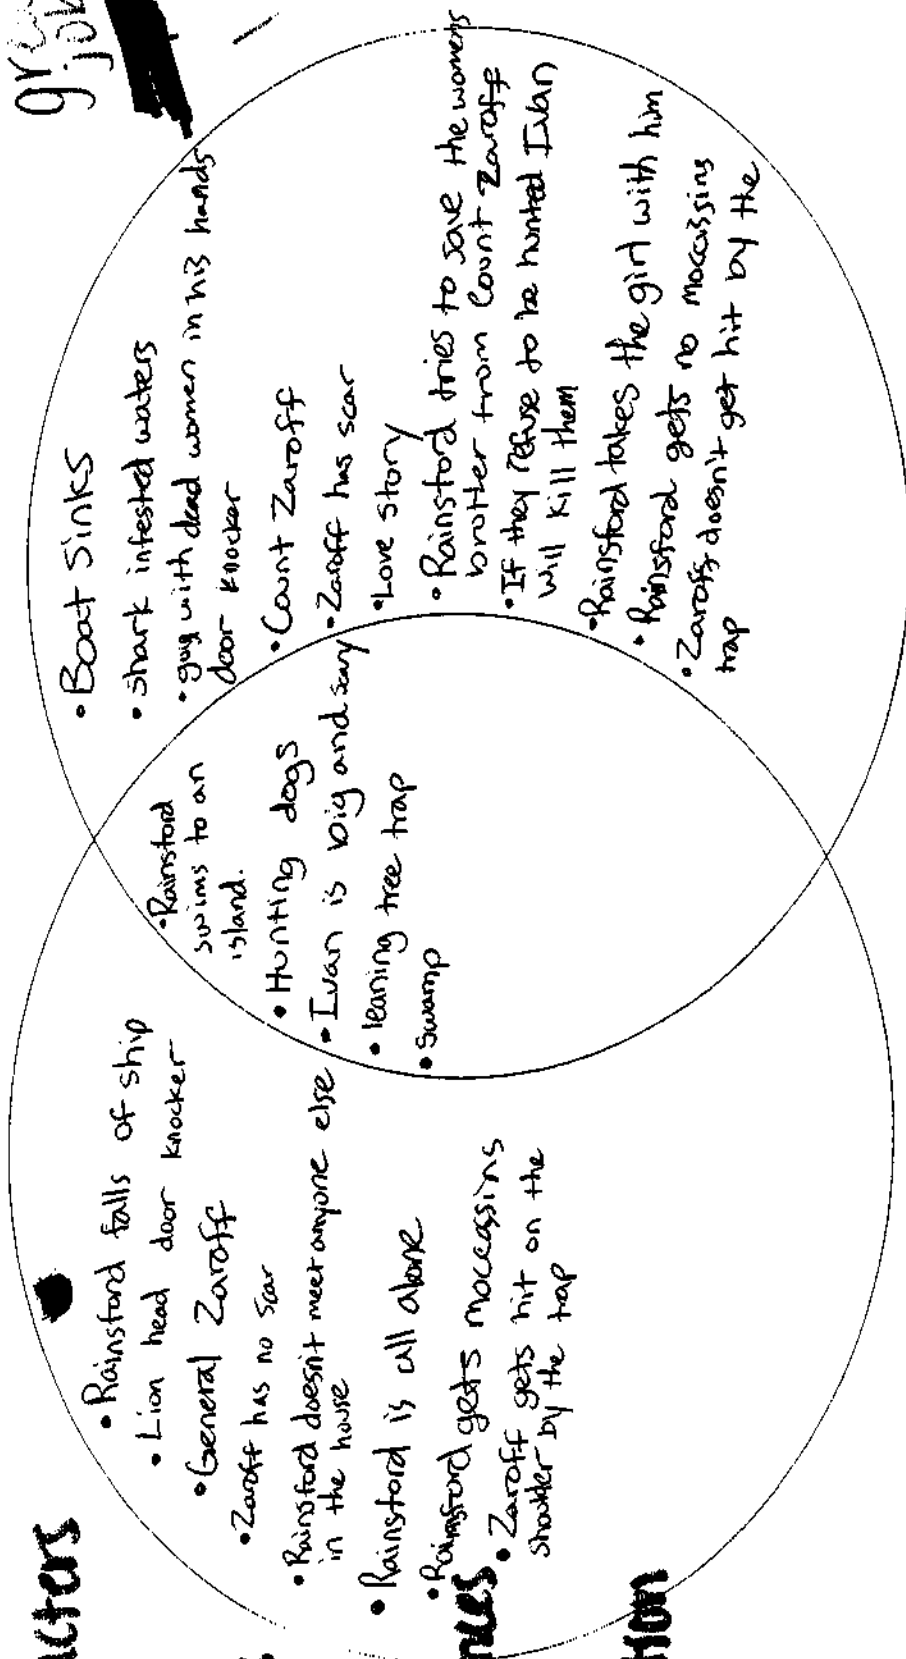 great
job
• Rainsford falls of ship
• Lion head door knocker
• General Zaroff
• Zaroff has no scar
• Rainsford doesn't meet anyone else
in the house
• Rainsford is all alone
• Rainsford gets moccassins
• Zaroff gets hit on the
shoulder by the trap
• Rainsford
swims to an
island.
• Hunting dogs
• Ivan is big and scary
• leaning tree trap
• swamp
• Boat sinks
• shark infested waters
• guy with dead women in his hands
door knocker
• Count Zaroff
• Zaroff has scar
• Love story
• Rainsford tries to save the womens
brother from Count Zaroff
• If they refuse to be hunted Ivan
will kill them
• Rainsford takes the girl with him
• Rainsford gets no moccassins
• Zaroffs doesn't get hit by the
trap